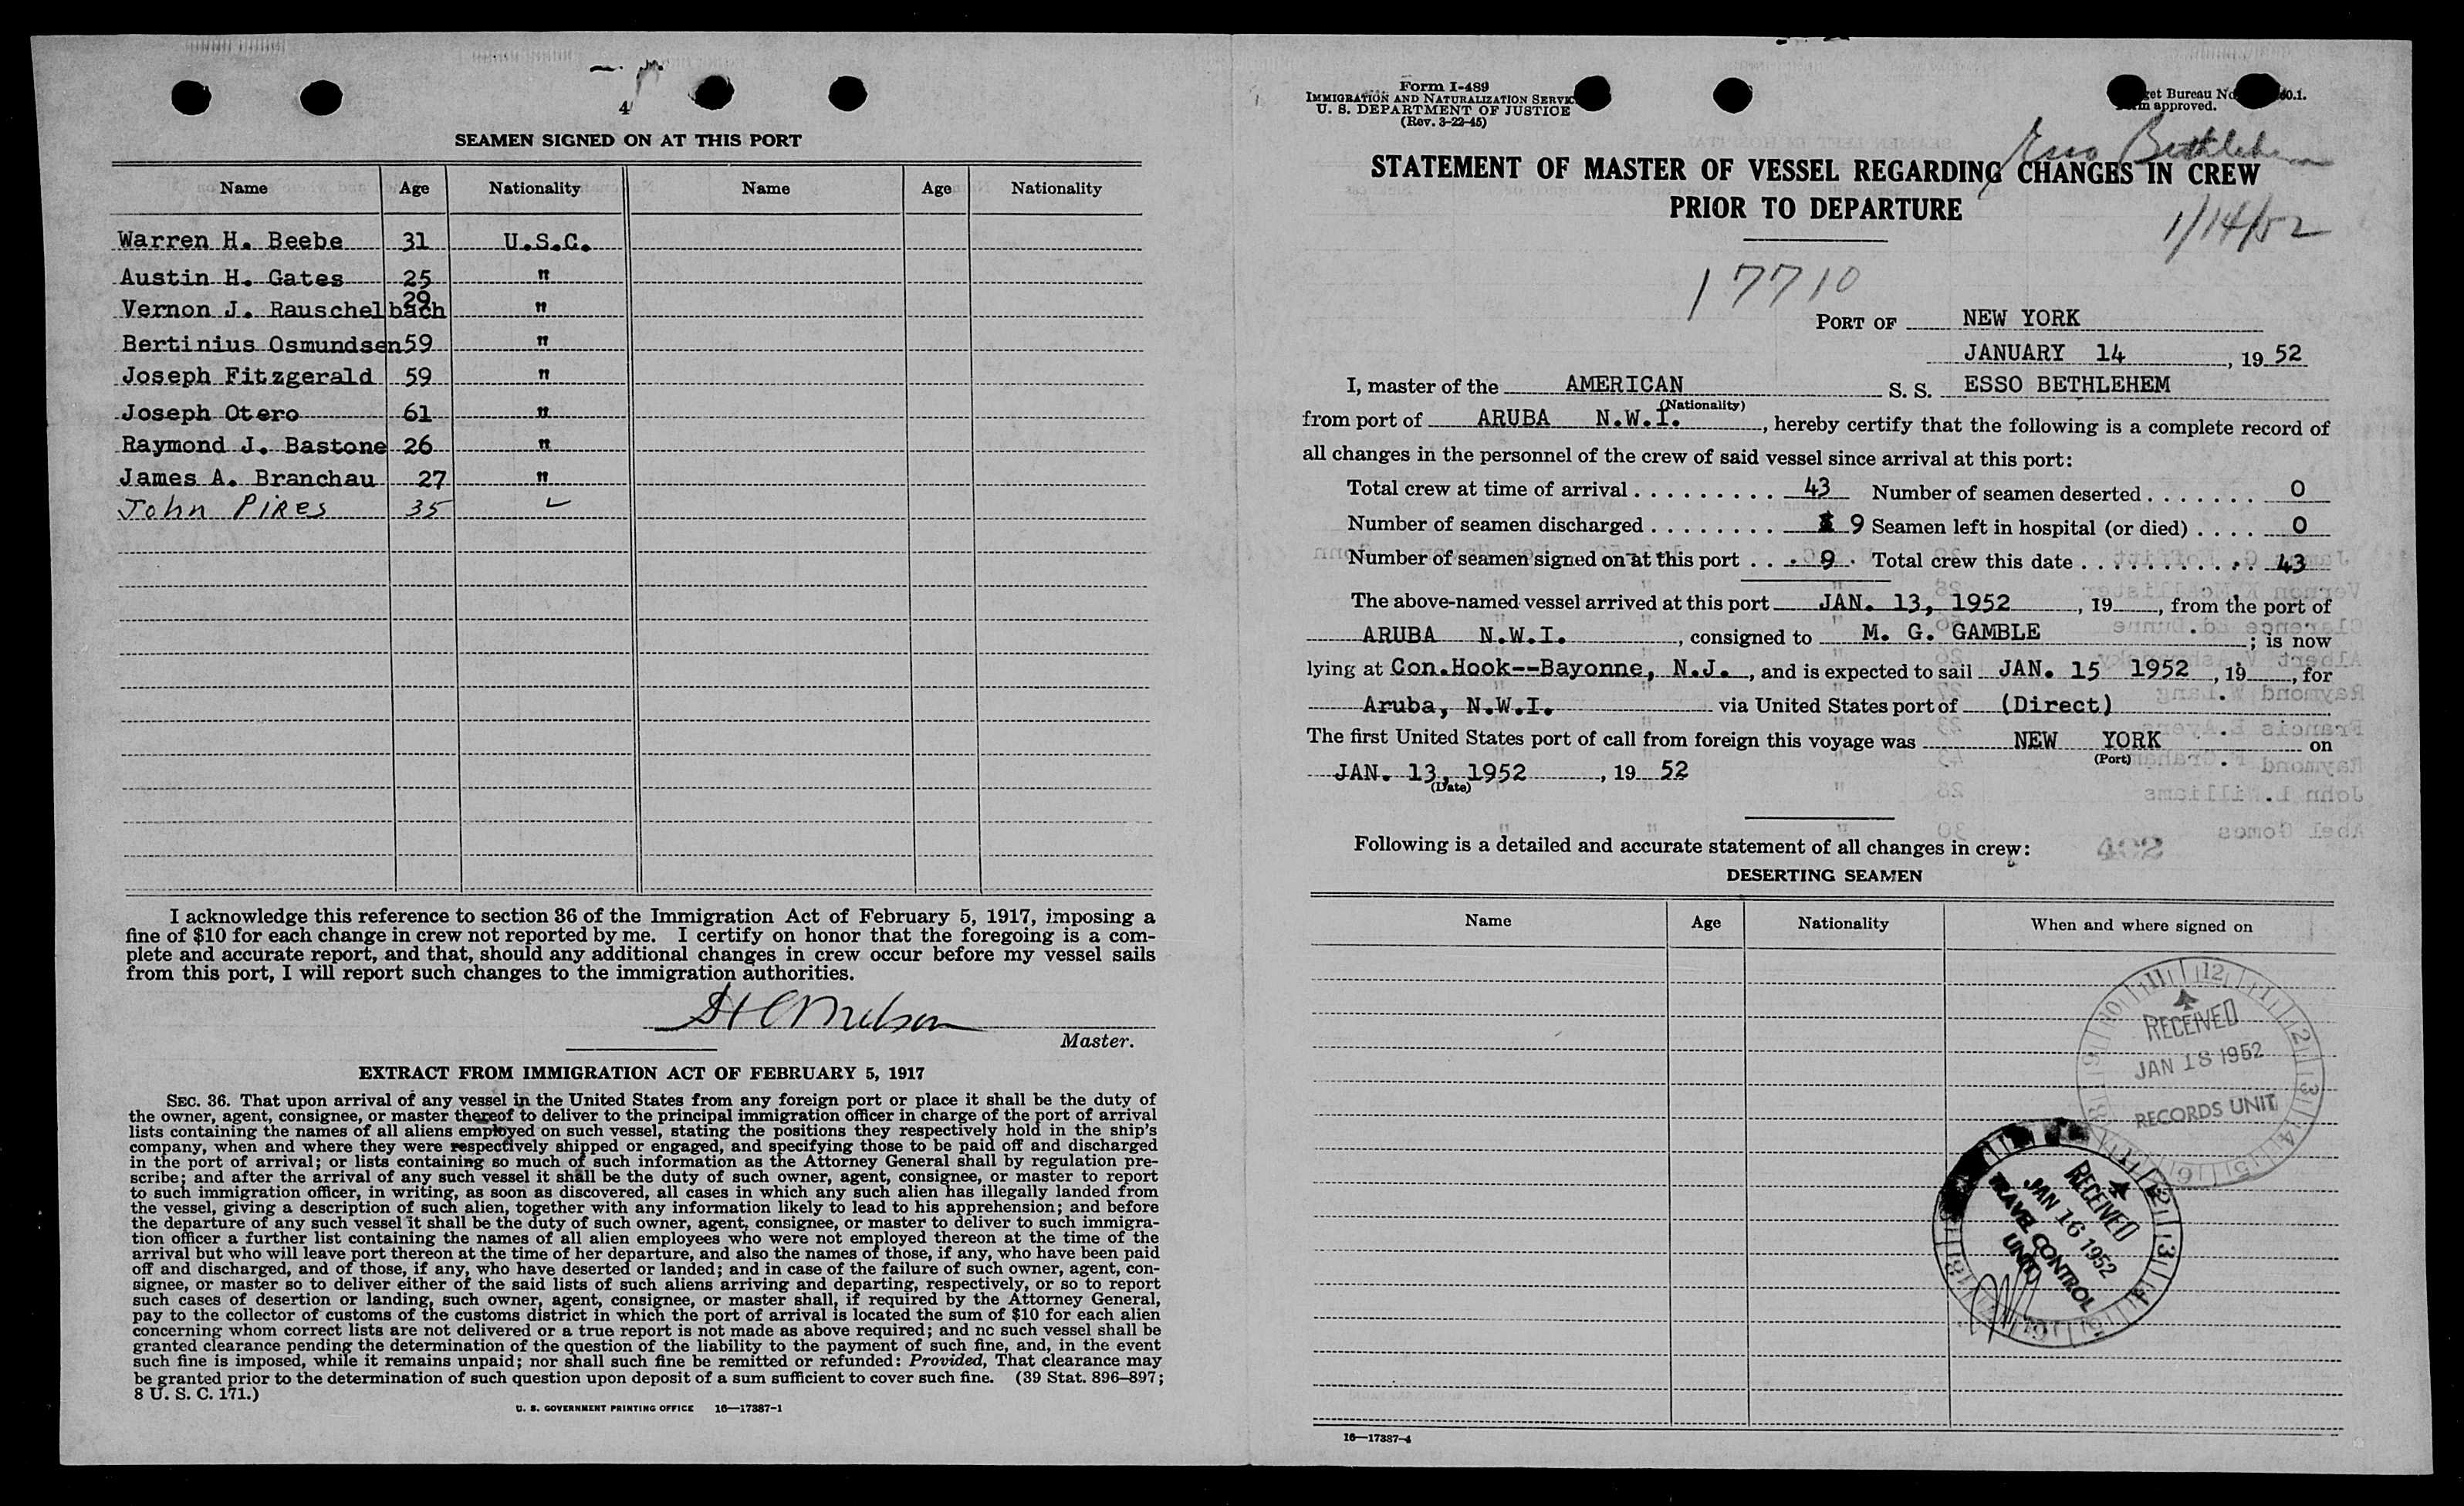 4
SEAMEN SIGNED ON AT THIS PORT
Name Age Nationality Name Age Nationality
Warren H. Beebe 31 U.S.C.
Austin H. Gates 25 "
Vernon J. Rauschelbach 29 "
Bertinius Osmundsen 59 "
Joseph Fitzgerald 59 "
Joseph Otero 61 "
Raymond J. Bastone 26 "
James A. Branchau 27 "
John Pires 35
I acknowledge this reference to section 36 of the Immigration Act of February 5, 1917, imposing a
fine of $10 for each change in crew not reported by me. I certify on honor that the foregoing is a com-
plete and accurate report, and that, should any additional changes in crew occur before my vessel sails
from this port, I will report such changes to the immigration authorities.
Master.
EXTRACT FROM IMMIGRATION ACT OF FEBRUARY 5, 1917
SEC. 36. That upon arrival of any vessel in the United States from any foreign port or place it shall be the duty of
the owner, agent, consignee, or master thereof to deliver to the principal immigration officer in charge of the port of arrival
lists containing the names of all aliens employed on such vessel, stating the positions they respectively hold in the ship's
company, when and where they were respectively shipped or engaged, and specifying those to be paid off and discharged
in the port of arrival; or lists containing so much of such information as the Attorney General shall by regulation pre-
scribe; and after the arrival of any such vessel it shall be the duty of such owner, agent, consignee, or master to report
to such immigration officer, in writing, as soon as discovered, all cases in which any such alien has illegally landed from
the vessel, giving a description of such alien, together with any information likely to lead to his apprehension; and before
the departure of any such vessel it shall be the duty of such owner, agent, consignee, or master to deliver to such immigra-
tion officer a further list containing the names of all alien employees who were not employed thereon at the time of the
arrival but who will leave port thereon at the time of her departure, and also the names of those, if any, who have been paid
off and discharged, and of those, if any, who have deserted or landed; and in case of the failure of such owner, agent, con-
signee, or master so to deliver either of the said lists of such aliens arriving and departing, respectively, or so to report
such cases of desertion or landing, such owner, agent, consignee, or master shall, if required by the Attorney General,
pay to the collector of customs of the customs district in which the port of arrival is located the sum of $10 for each alien
concerning whom correct lists are not delivered or a true report is not made as above required; and no such vessel shall be
granted clearance pending the determination of the question of the liability to the payment of such fine, and, in the event
such fine is imposed, while it remains unpaid; nor shall such fine be remitted or refunded: Provided, That clearance may
be granted prior to the determination of such question upon deposit of a sum sufficient to cover such fine. (39 Stat. 896–897;
8 U. S. C. 171.)
U. S. GOVERNMENT PRINTING OFFICE 16—17387-1
Form I-489
IMMIGRATION AND NATURALIZATION SERVICE
U. S. DEPARTMENT OF JUSTICE
(Rev. 3-22-45)
Bureau No.
approved.
Esso Bethlehem
STATEMENT OF MASTER OF VESSEL REGARDING CHANGES IN CREW
PRIOR TO DEPARTURE
1/14/52
17710
PORT OF NEW YORK
JANUARY 14, 19 52
I, master of the AMERICAN S. S. ESSO BETHLEHEM
(Nationality)
from port of ARUBA N.W.I., hereby certify that the following is a complete record of
all changes in the personnel of the crew of said vessel since arrival at this port:
Total crew at time of arrival . . . . . . . . . 43 Number of seamen deserted . . . . . . . 0
Number of seamen discharged . . . . . . . . 9 Seamen left in hospital (or died) . . . . 0
Number of seamen signed on at this port . . . 9 . Total crew this date . . . . . . . . . . . 43
The above-named vessel arrived at this port JAN. 13, 1952, 19 , from the port of
ARUBA N.W.I., consigned to M. G. GAMBLE ; is now
lying at Con.Hook--Bayonne, N.J., and is expected to sail JAN. 15 1952, 19 , for
Aruba, N.W.I. via United States port of (Direct)
The first United States port of call from foreign this voyage was NEW YORK on
(Port)
JAN. 13, 1952, 19 52
(Date)
Following is a detailed and accurate statement of all changes in crew:
402
DESERTING SEAMEN
Name Age Nationality When and where signed on
RECEIVED
JAN 18 1952
RECORDS UNIT
RECEIVED
JAN 16 1952
TRAVEL CONTROL
UNIT
16—17387-4